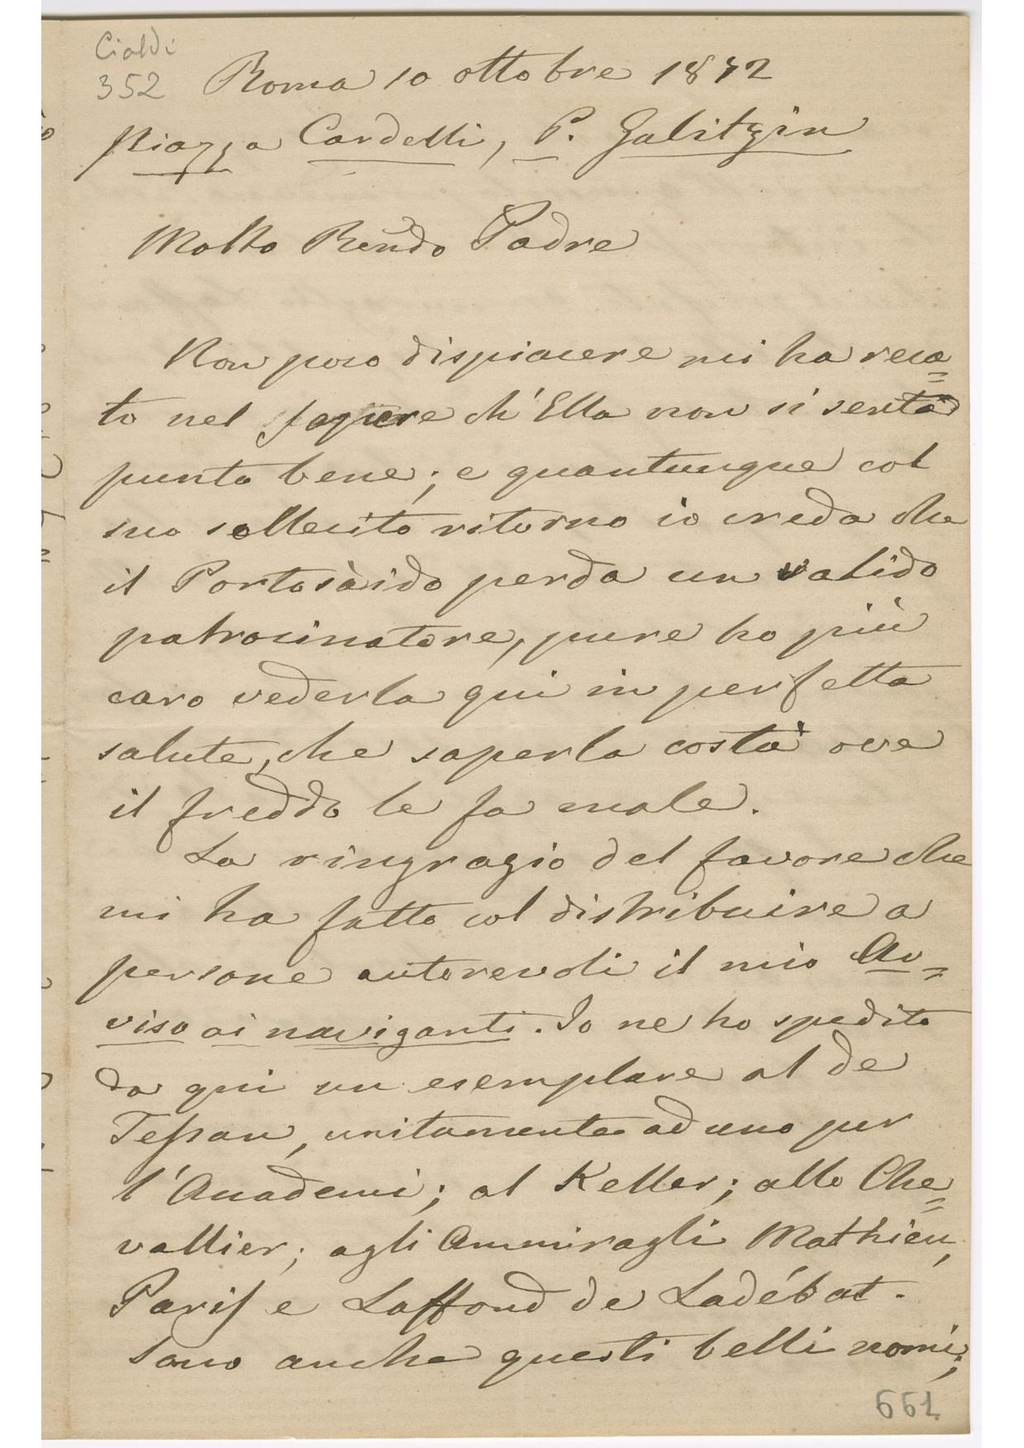 Cialdi
352
Roma 10 ottobre 1872
Piazza Cardelli, P. Galitzin
Molto Rendo Padre
Non poco dispiacere mi ha reca=
to nel sapere ch'Ella non si senta
punto bene; e quantunque col
suo sollecito ritorno io creda che
il Portosàido perda un valido
patrocinatore, pure ho più
caro vederla qui in perfetta
salute, che saperla costà ove
il freddo le fa male.
La ringrazio del favore che
mi ha fatto col distribuire a
persone autorevoli il mio Av=
viso ai naviganti. Io ne ho spedito
da qui un esemplare al de
Tessan, unitamente ad uno per
l'Accademi; al Keller; allo Che=
vallier; agli Ammiragli Mathieu,
Paris e Laffond de Ladébat.
Sono anche questi belli nomi;
661